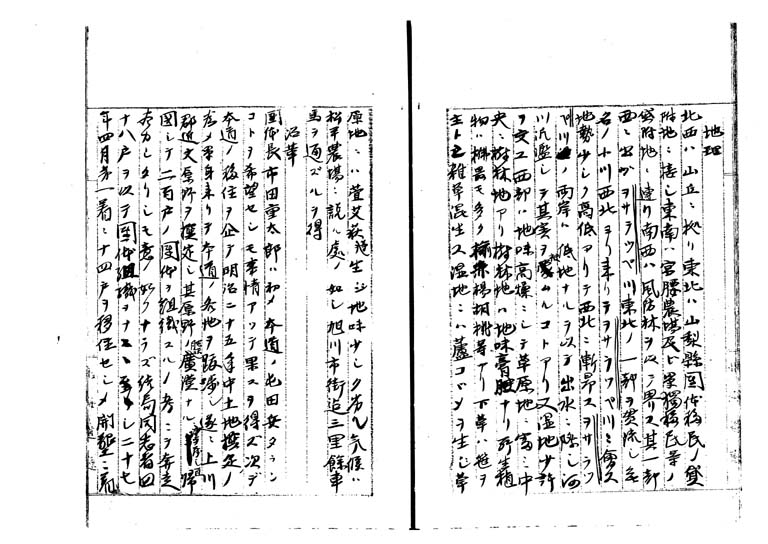 地理
北西ハ山丘ニ拠リ東北ハ山梨縣団体移民ノ貸
附地ニ接シ東南ハ宮腰農場及ビ単獨移民等ノ
貸附地ニ連リ南西ハ風防林ヲ以テ界ス其一部
西ニ出ヅヲサラッペ川東北ノ一部ヲ貫流シ
名ノ小川西北ヨリ来リテヲサラッペ川ニ會ス
地勢少シク高低アリテ西北ニ漸昂スヲサラッ
ペ川ノ両岸ハ低地ナルヲ以テ出水ニ際シ河
川氾濫シテ其害ヲ蒙ムルコトアリ又湿地少許
ヲ交ユ西部ハ地味高燥ニシテ草原地ニ富ミ中
央ニ樹林地アリ樹林地ハ地味膏腴ナリ所生植
物ハ樹木最モ多ク楊胡桃等アリ下草ハ笹ヲ
主トシ雑草混生ス湿地ニハ蘆コバメヲ生シ草
原地ニハ萱艾萩等生ジ地味少シク劣ル気候ハ
松平農場ニ説ク處ノ如シ旭川市街迄三里餘車
馬ヲ通ズルヲ得
沿革
団体長市田重太郎ハ初メ本道ノ屯田兵タラン
コトヲ希望セシモ事情アリテ果スヲ得ズ次デ
本道ノ移住ヲ企テ明治二十五年中土地撰定ノ
為メ単身来リテ本道ノ各地ヲ跋渉シ遂ニ上川
郡近文原野ヲ撰定シ其原野ノ廣漠ナル 帰
国シテ二百戸ノ団体ヲ組織スルノ考ニテ奔走
尽力シタリシモ意ノ如クナラズ結局同志者四
十八戸ヲ以テ団体組織ヲナスニ至リ二十七
年四月第一着ニ十四戸ヲ移住セシメ開墾ニ着